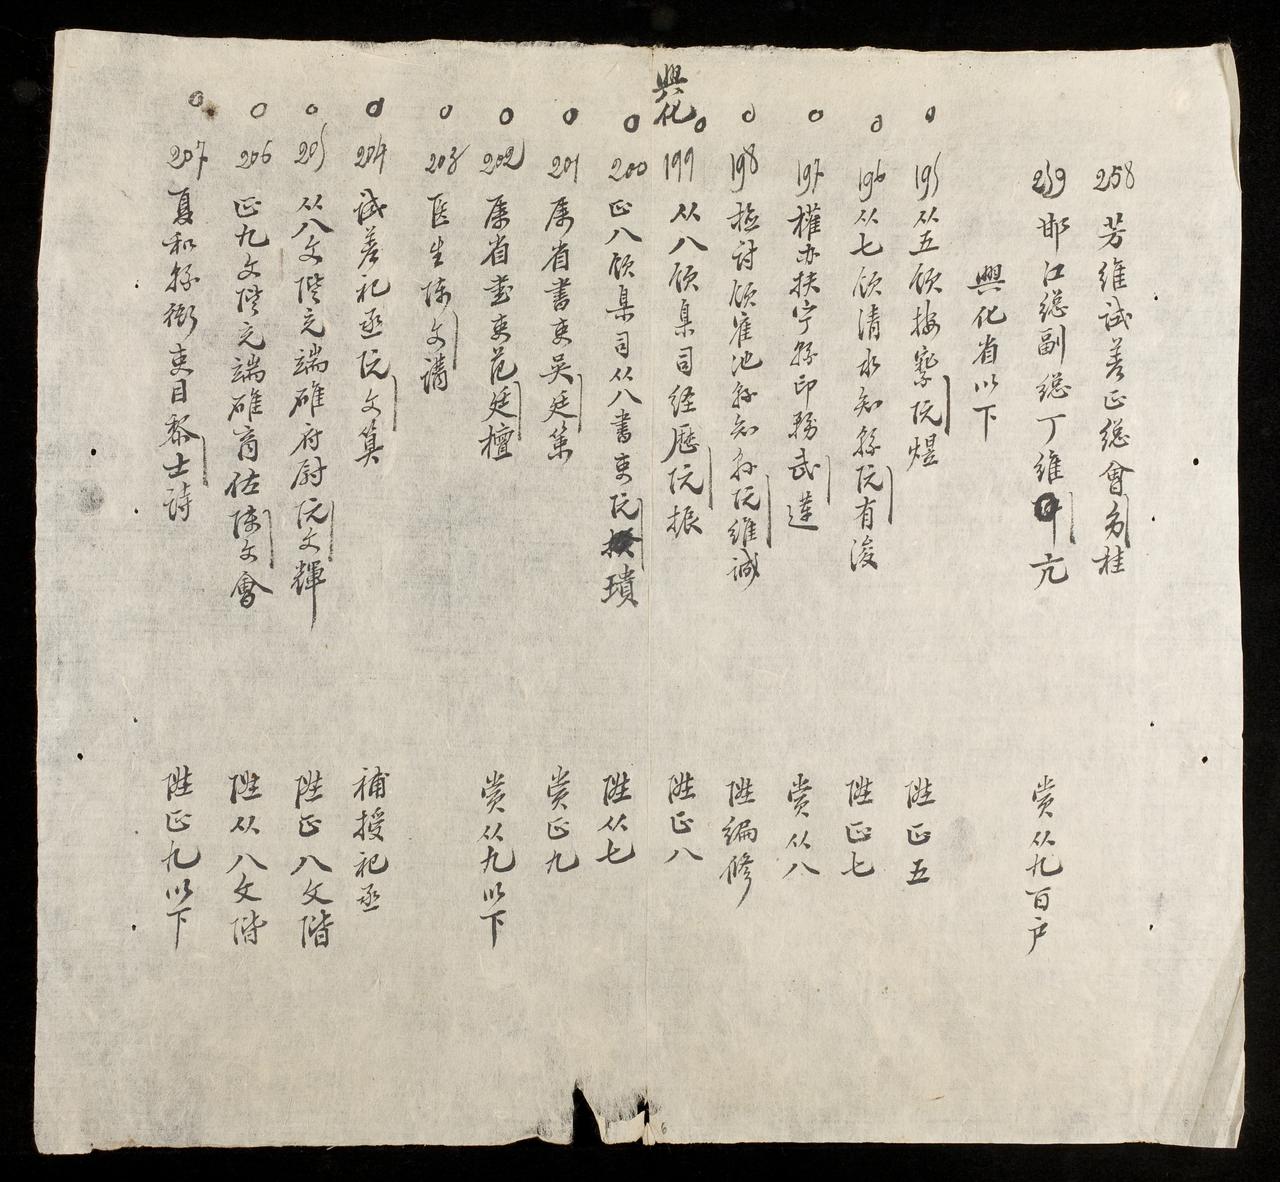 興化
258 芳維試差正総會 桂
259 邯江総副総丁維亢 賞从九百户
興化省以下
195 从五領按察阮煜 陞正五
196 从七領清水知縣阮有浚 陞正七
197 權办扶宁縣印務武蓮 賞从八
198 檢討領雇池縣知縣阮維誠 陞編修
199 从八領臬司経歷阮振 陞正八
200 正八領臬司从八書吏阮璝 陞从七
201 属省書吏吳廷策 賞正九
202 属省書吏范廷檀 賞从九以下
203 医生陳文講
204 試差祀丞阮文筭 補授祀丞
205 从八文階充端雄府尉阮文輝 陞正八文階
206 正九文階充端雄商佐陳文會 陞从八文階
207 夏和縣衙吏目黎士詩 陞正九以下
6